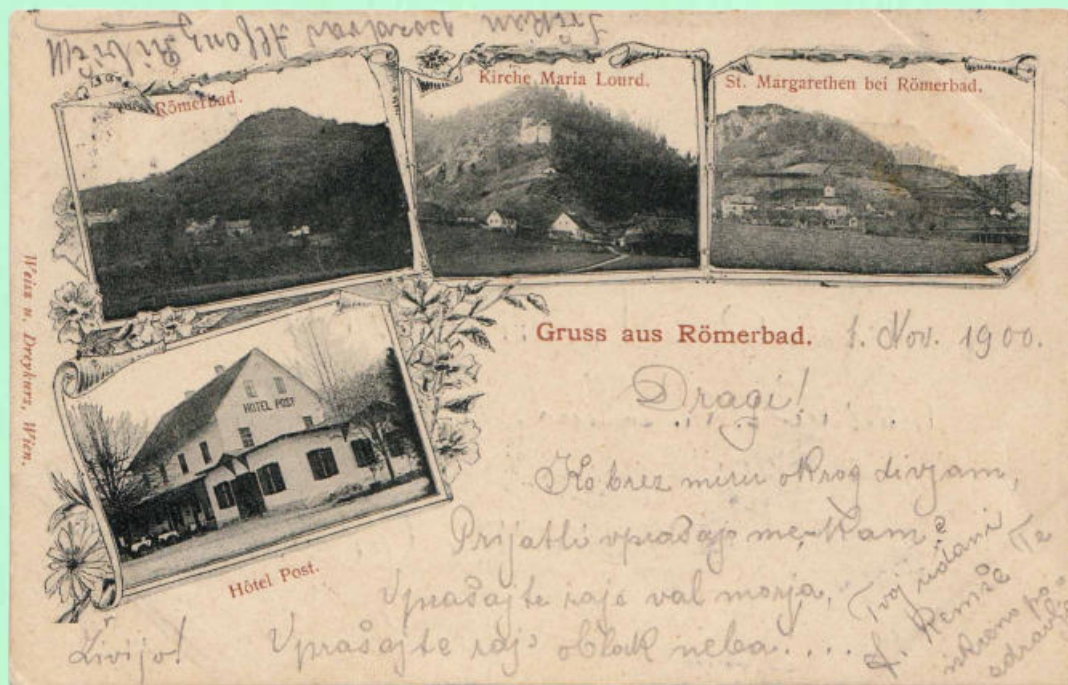 Srčkan pozdrav Alfonz
Römerbad.
Kirche Maria Lourd.
St. Margarethen bei Römerbad.
Weiss u. Dreykurs, Wien.
HOTEL POST
Hôtel Post.
Gruss aus Römerbad. 1. Nov. 1900.
Dragi!
Ko brez miru okrog divjam,
Prijatli vprašajo me-kam?
Vprašajte raje val morja,
Vprašajte rajš oblak neba....
Živijo!
Tvoj udani
Te
iskreno po-
zdravlja